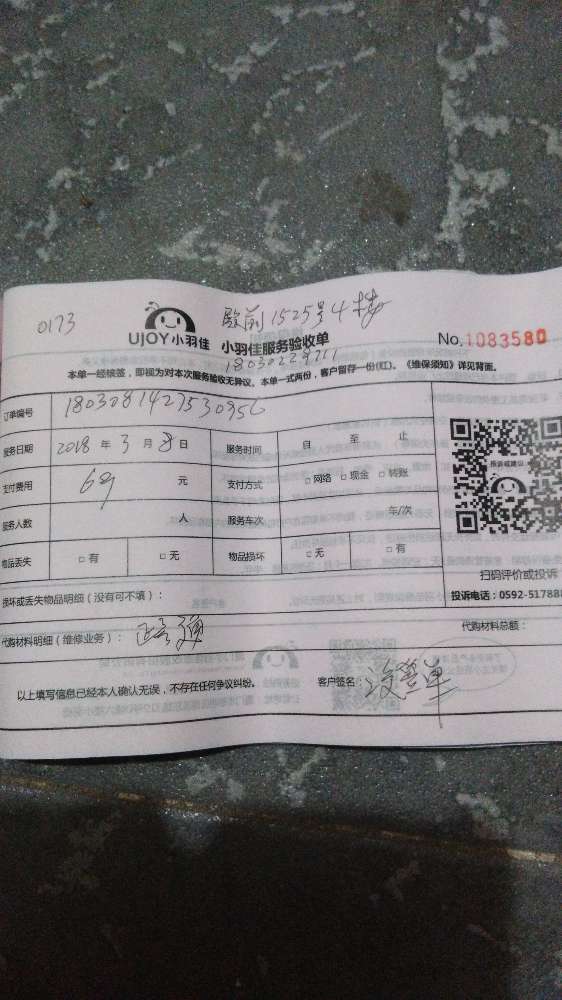 0173
前1525号4楼
UJOY小羽佳 小羽佳服务验收单
No.1083580
本单一经核签，即视为对本次服务验收无异议。本单一式两份，客户留存一份(红)。《维保须知》详见背面。
订单编号
服务日期 2018 年 3 月 8 日 服务时间 自 至 止
支付费用 69 元 支付方式 □网络 □现金 □转账
服务人数 人 服务车次 车/次
物品丢失 □有 □无 物品损坏 □无 □有
投诉或建议
扫码评价或投诉
投诉电话：0592-517888
损坏或丢失物品明细（没有可不填）：
代购材料明细（维修业务）： 代购材料总额：
以上填写信息已经本人确认无误，不存在任何争议纠纷。 客户签名：